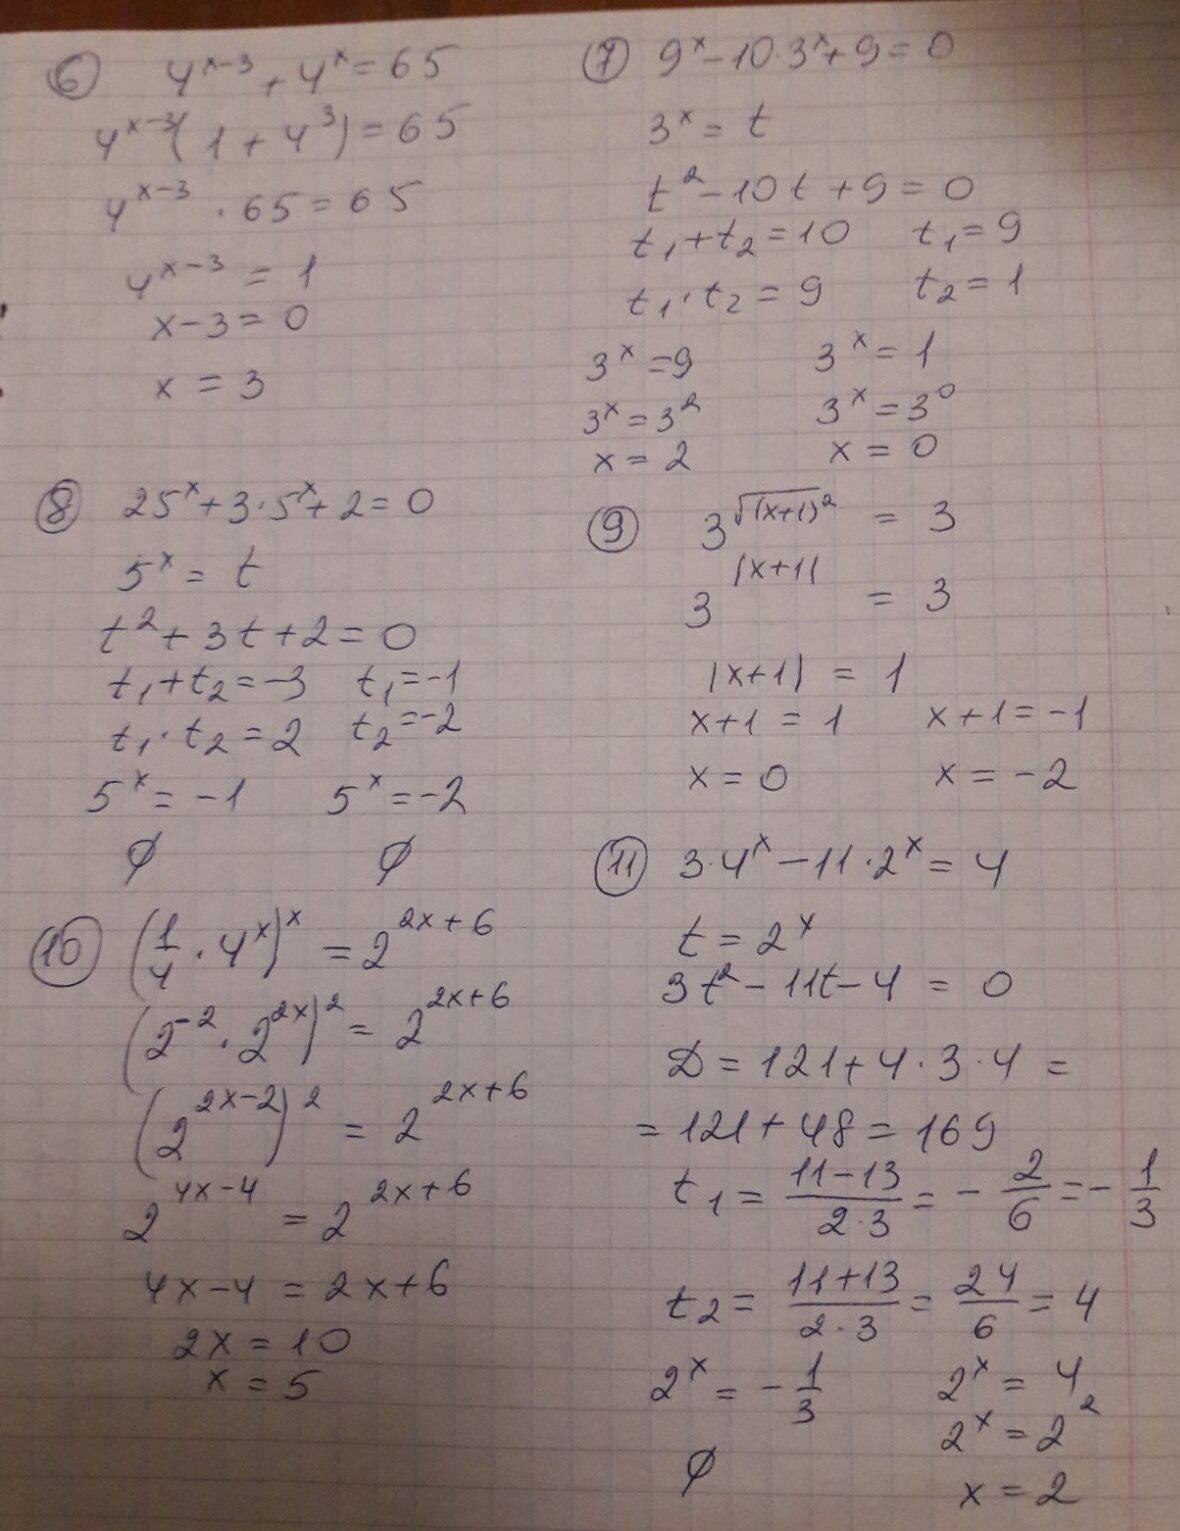 ⑥ 4^{x-3} + 4^x = 65
4^{x-3}(1 + 4^3) = 65
4^{x-3} · 65 = 65
4^{x-3} = 1
x - 3 = 0
x = 3
⑦ 9^x - 10·3^x + 9 = 0
3^x = t
t^2 - 10t + 9 = 0
t₁ + t₂ = 10 t₁ = 9
t₁ · t₂ = 9 t₂ = 1
3^x = 9 3^x = 1
3^x = 3^2 3^x = 3^0
x = 2 x = 0
⑧ 25^x + 3·5^x + 2 = 0
5^x = t
t^2 + 3t + 2 = 0
t₁ + t₂ = -3 t₁ = -1
t₁ · t₂ = 2 t₂ = -2
5^x = -1 5^x = -2
∅ ∅
⑨ 3^{√((x+1)^2)} = 3
3^{|x+1|} = 3
|x+1| = 1
x+1 = 1 x+1 = -1
x = 0 x = -2
⑩ (1/4 · 4^x)^x = 2^{2x+6}
(2^{-2} · 2^{2x})^2 = 2^{2x+6}
(2^{2x-2})^2 = 2^{2x+6}
2^{4x-4} = 2^{2x+6}
4x-4 = 2x+6
2x = 10
x = 5
⑪ 3·4^x - 11·2^x = 4
t = 2^x
3t^2 - 11t - 4 = 0
D = 121 + 4·3·4 =
= 121 + 48 = 169
t₁ = (11-13)/(2·3) = -2/6 = -1/3
t₂ = (11+13)/(2·3) = 24/6 = 4
2^x = -1/3 2^x = 4
2^x = 2^2
∅ x = 2